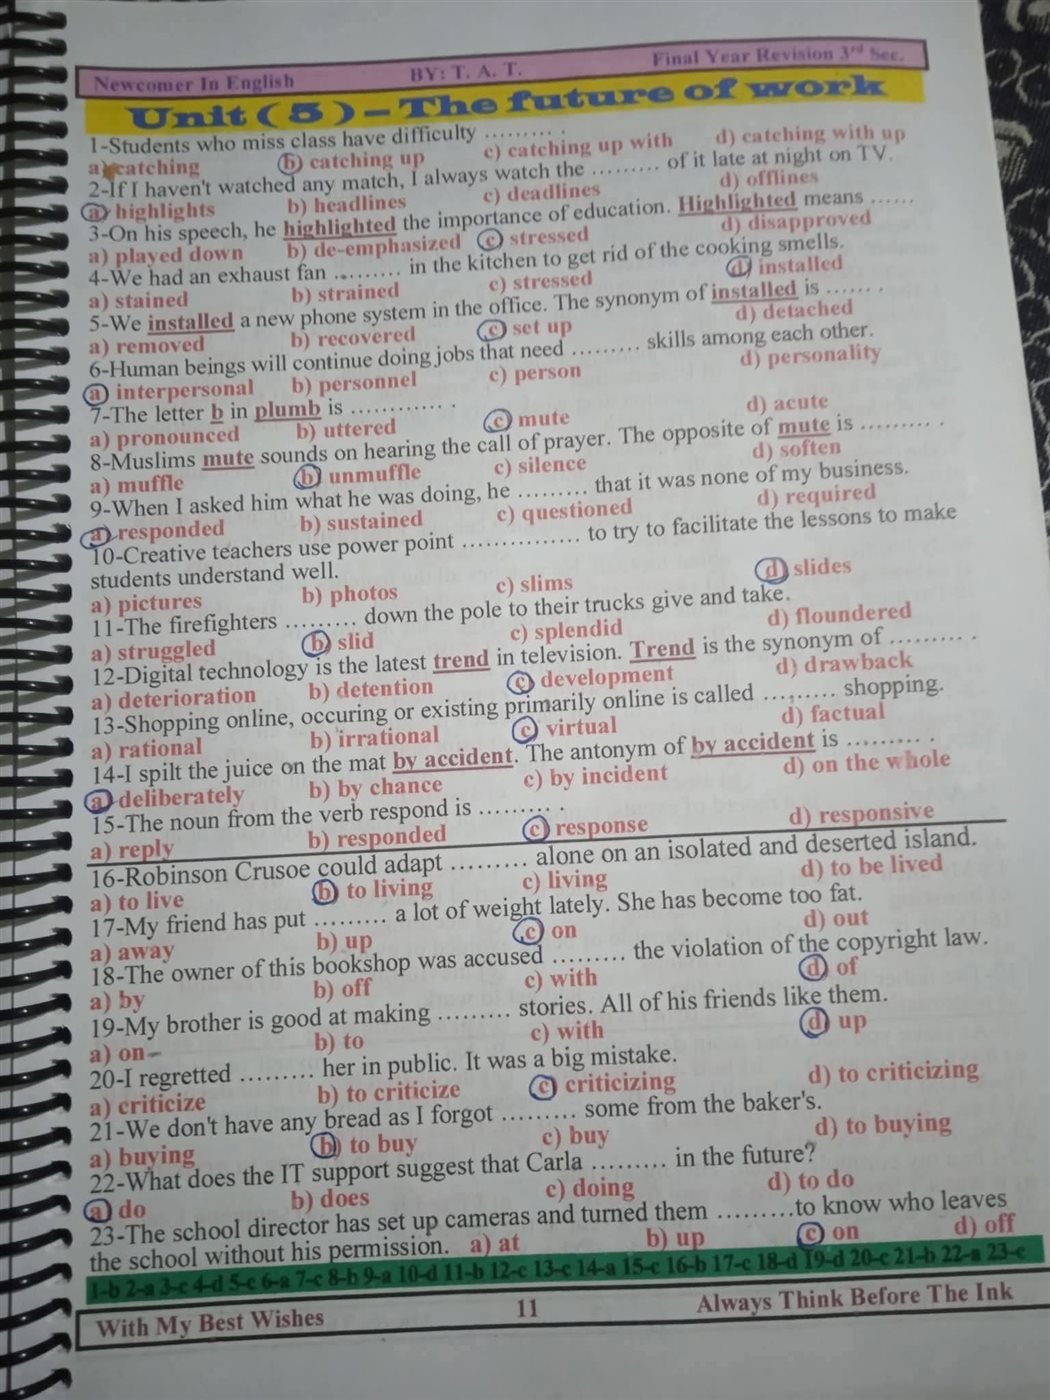 Newcomer In English BY: T. A. T. Final Year Revision 3rd Sec.
Unit ( 5 ) – The future of work
1-Students who miss class have difficulty ......... .
a) catching b) catching up c) catching up with d) catching with up
2-If I haven't watched any match, I always watch the ......... of it late at night on TV.
a) highlights b) headlines c) deadlines d) offlines
3-On his speech, he highlighted the importance of education. Highlighted means ......
a) played down b) de-emphasized c) stressed d) disapproved
4-We had an exhaust fan ......... in the kitchen to get rid of the cooking smells.
a) stained b) strained c) stressed d) installed
5-We installed a new phone system in the office. The synonym of installed is ...... .
a) removed b) recovered c) set up d) detached
6-Human beings will continue doing jobs that need ......... skills among each other.
a) interpersonal b) personnel c) person d) personality
7-The letter b in plumb is ............ .
a) pronounced b) uttered c) mute d) acute
8-Muslims mute sounds on hearing the call of prayer. The opposite of mute is ......... .
a) muffle b) unmuffle c) silence d) soften
9-When I asked him what he was doing, he ......... that it was none of my business.
a) responded b) sustained c) questioned d) required
10-Creative teachers use power point ............... to try to facilitate the lessons to make
students understand well.
a) pictures b) photos c) slims d) slides
11-The firefighters ......... down the pole to their trucks give and take.
a) struggled b) slid c) splendid d) floundered
12-Digital technology is the latest trend in television. Trend is the synonym of ......... .
a) deterioration b) detention c) development d) drawback
13-Shopping online, occuring or existing primarily online is called ......... shopping.
a) rational b) irrational c) virtual d) factual
14-I spilt the juice on the mat by accident. The antonym of by accident is ......... .
a) deliberately b) by chance c) by incident d) on the whole
15-The noun from the verb respond is ......... .
a) reply b) responded c) response d) responsive
16-Robinson Crusoe could adapt ......... alone on an isolated and deserted island.
a) to live b) to living c) living d) to be lived
17-My friend has put ......... a lot of weight lately. She has become too fat.
a) away b) up c) on d) out
18-The owner of this bookshop was accused ......... the violation of the copyright law.
a) by b) off c) with d) of
19-My brother is good at making ......... stories. All of his friends like them.
a) on b) to c) with d) up
20-I regretted ......... her in public. It was a big mistake.
a) criticize b) to criticize c) criticizing d) to criticizing
21-We don't have any bread as I forgot ......... some from the baker's.
a) buying b) to buy c) buy d) to buying
22-What does the IT support suggest that Carla ......... in the future?
a) do b) does c) doing d) to do
23-The school director has set up cameras and turned them .........to know who leaves
the school without his permission. a) at b) up c) on d) off
1-b 2-a 3-c 4-d 5-c 6-a 7-c 8-b 9-a 10-d 11-b 12-c 13-c 14-a 15-c 16-b 17-c 18-d 19-d 20-c 21-b 22-a 23-c
With My Best Wishes 11 Always Think Before The Ink